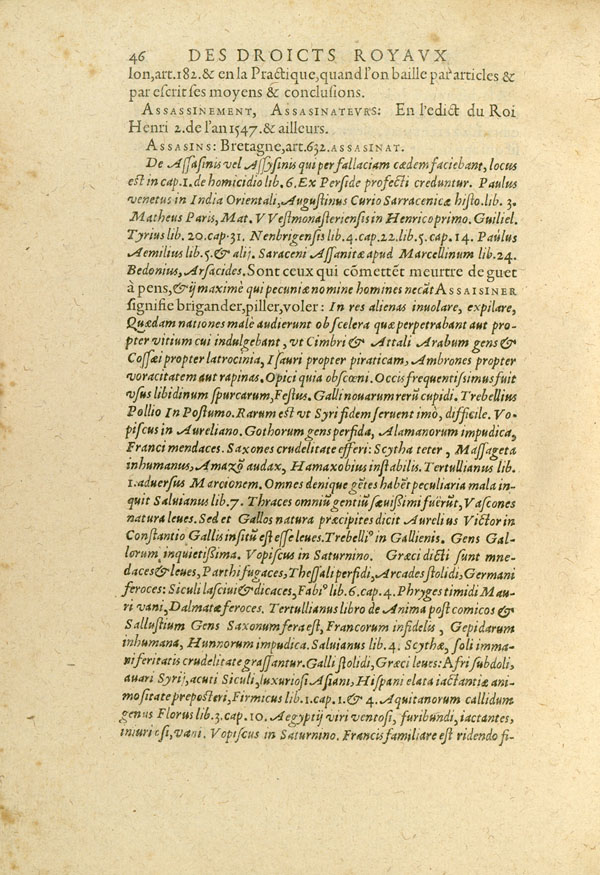 46 DES DROICTS ROYAVX
lon,art.182.& en la Practique,quand l'on baille par articles &
par escrit ses moyens & conclusions.
ASSASSINEMENT, ASSASINATEVRS: En l'edict du Roi
Henri 2.de l'an 1547.& ailleurs.
ASSASINS: Bretagne,art.632.ASSASINAT.
De Assasinis vel Assysinis qui per fallaciam cædem faciebant, locus
est in cap.1.de homicidio lib. 6.Ex Perside profecti creduntur. Paulus
venetus in India Orientali, Augustinus Curio Sarracenicæ histo.lib. 3.
Matheus Paris, Mat. VVestmonasteriensis in Henrico primo. Guiliel.
Tyrius lib. 20.cap.31. Nenbrigensis lib.4.cap.22.lib.5.cap.14. Paulus
Aemilius lib.5.& alij. Saraceni Assanitæ apud Marcellinum lib.24.
Bedonius, Arsacides. Sont ceux qui cõmettẽt meurtre de guet
à pens, & ij maximè qui pecuniæ nomine homines necãt ASSAISINER
signifie brigander,piller,voler: In res alienas inuolare, expilare,
Quædam nationes malè audierunt ob scelera quæ perpetrabant aut pro-
pter vitium cui indulgebant, vt Cimbri & Attali Arabum gens &
Cossæi propter latrocinia, Isauri propter piraticam, Ambrones propter
voracitatem aut rapinas. Opici quia obscœni. Occis frequentissimus fuit
vsus libidinum spurcarum, Festus. Galli nouarum rerũ cupidi. Trebellius
Pollio In Postumo. Rarum est vt Syri fidem seruent imò, difficile. Vo-
piscus in Aureliano. Gothorum gens perfida, Alamanorum impudica,
Franci mendaces. Saxones crudelitate efferi: Scytha teter, Massageta
inhumanus, Amazõ audax, Hamaxobius instabilis. Tertullianus lib.
1.aduersus Marcionem. Omnes denique gẽtes habẽt peculiaria mala in-
quit Saluianus lib.7. Thraces omniũ gentiũ sæuissimi fuerũt, Vascones
natura leues. Sed et Gallos natura præcipites dicit Aurelius Victor in
Constantio Gallis insitũ est esse leues. Trebelli⁹ in Gallienis. Gens Gal-
lorum inquietissima. Vopiscus in Saturnino. Græci dicti sunt mne-
daces & leues, Parthi fugaces, Thessali perfidi, Arcades stolidi, Germani
feroces: Siculi lasciui & dicaces, Fabi⁹ lib.6.cap.4. Phryges timidi Mau-
ri vani, Dalmatæ feroces. Tertullianus libro de Anima post comicos &
Sallustium Gens Saxonum fera est, Francorum infidelis, Gepidarum
inhumana, Hunnorum impudica. Saluianus lib.4. Scythæ, soli imma-
ni feritatis crudelitate grassantur. Galli stolidi, Græci leues: Afri subdoli,
auari Syri, acuti Siculi, luxuriosi Asiani, Hispani elata iactantiæ ani-
mositate preposteri, Firmicus lib.1.cap.1.& 4. Aquitanorum callidum
genus Florus lib.3.cap.10. Aegyptij viri ventosi, furibundi, iactantes,
iniuriosi, vani. Vopiscus in Saturnino. Francis familiare est ridendo fi-